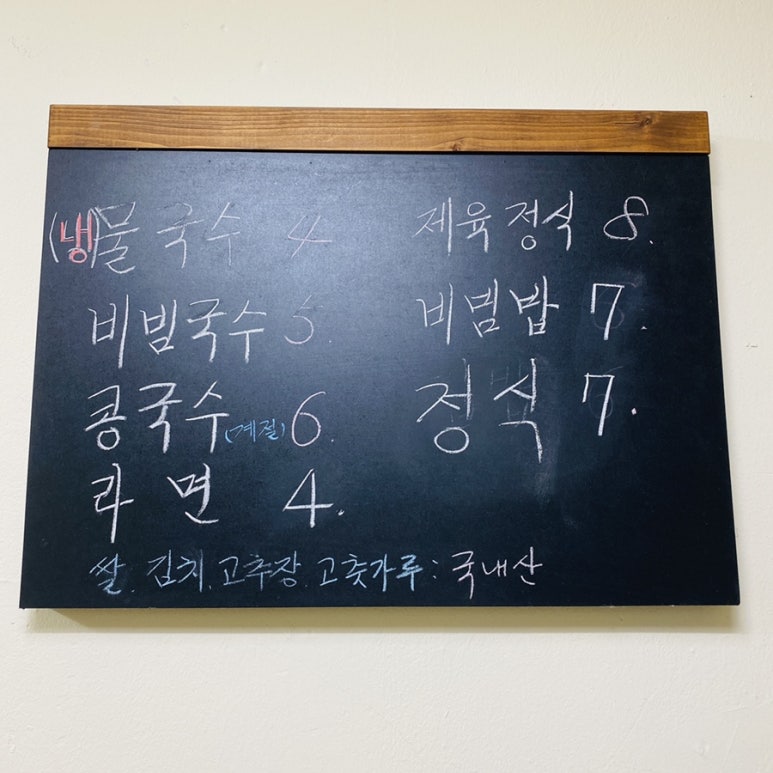 (냉)물국수 4
비빔국수 5.
콩국수(계절) 6.
라면 4.
제육정식 8.
비빔밥 7.
정식 7.
쌀. 김치. 고추장. 고춧가루: 국내산